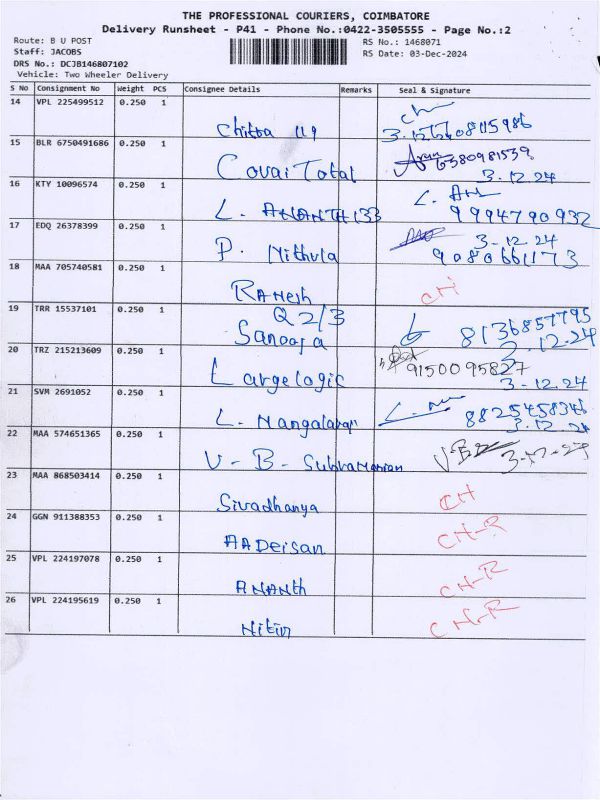 THE PROFESSIONAL COURIERS, COIMBATORE
Delivery Runsheet - P41 - Phone No.:0422-3505555 - Page No.:2
Route: B U POST
RS No.: 1468071
Staff: JACOBS
RS Date: 03-Dec-2024
DRS No.: DCJB146807102
Vehicle: Two Wheeler Delivery
S No Consignment No Weight PCS Consignee Details Remarks Seal & Signature
14 VPL 225499512 0.250 1
Chitra 119
15 BLR 6750491686 0.250 1
Covai Total 6380981539
3.12.24
16 KTY 10096574 0.250 1
L. ANANTH 133 9994790932
17 EDQ 26378399 0.250 1
3.12.24
P. Mithula 9080661173
18 MAA 705740581 0.250 1
RAMesh
19 TRR 15537101 0.250 1
Q 2/3
Sanooja 8136857795
3.12.24
20 TRZ 215213609 0.250 1
Largelogic 9150095827
3-12.24
21 SVM 2691052 0.250 1
L. Mangalakar 8825458346
3.12.24
22 MAA 574651365 0.250 1
V - B - Subramanian 3-12-24
23 MAA 868503414 0.250 1
Sivadhanya CH
24 GGN 911388353 0.250 1
AADeisan CH-R
25 VPL 224197078 0.250 1
ANANth CH-R
26 VPL 224195619 0.250 1
Nitin CH-R